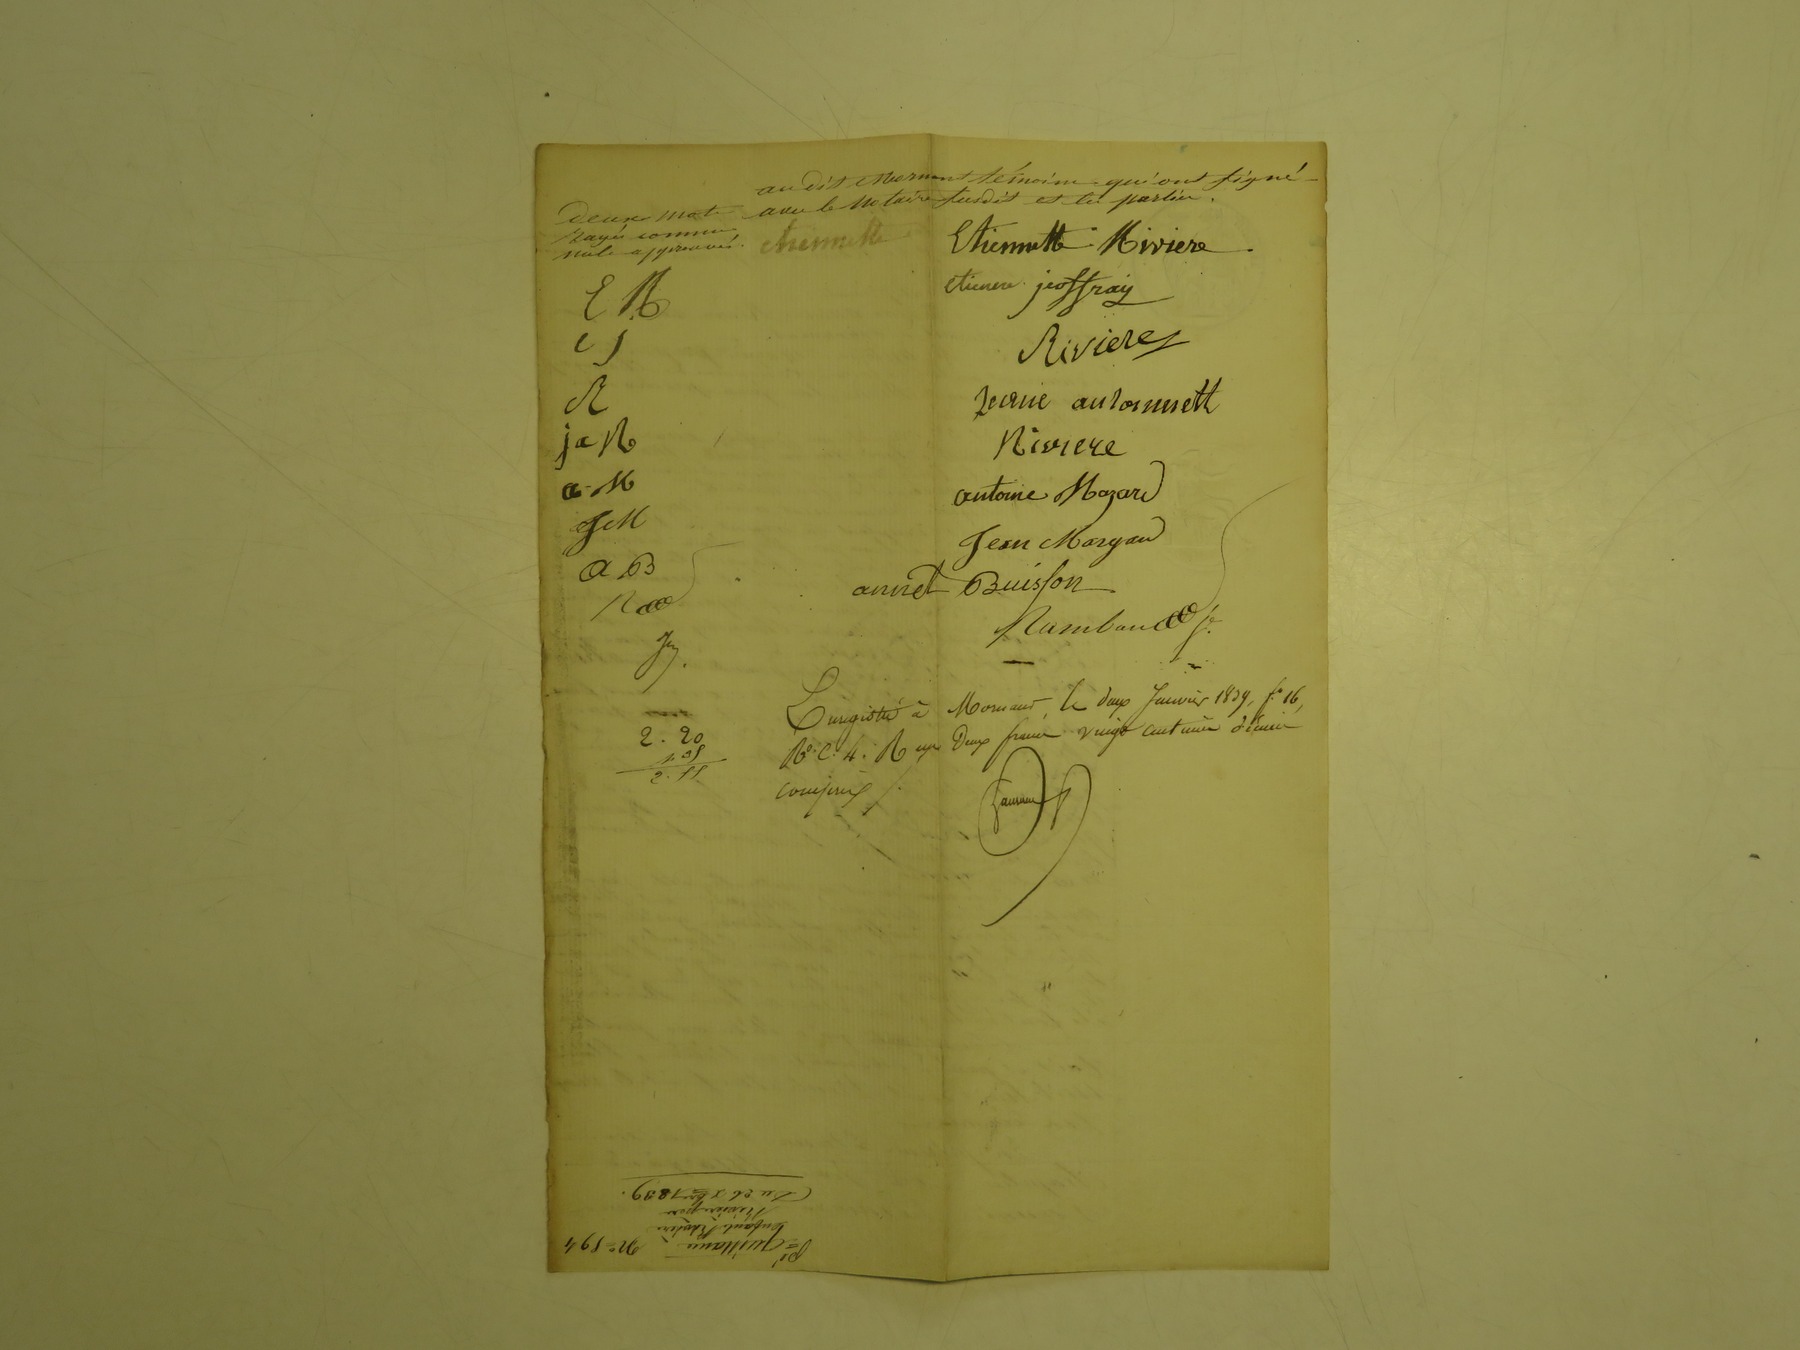 audit Mornant témoins qui ont signé
avec le Notaire susdit et les parties.
Deux mots
rayés comme
nuls approuvés.
etiennette
Etiennette Riviere
E R
etienne jeoffray
e J
Riviere
R
jeanne antoinnett
j a R
Riviere
antoine Mazard
a M
Jean Margand
J M
annet Buisson
a B
Rambaud
Enregistré à Mornant, le deux Janvier 1839, f° 16,
R° C. 4. Reçu Deux francs vingt centimes décime
compris
2. 20
2. 55
N° 594
Guillaume
Rivière père
Du 26 xbre 1839.